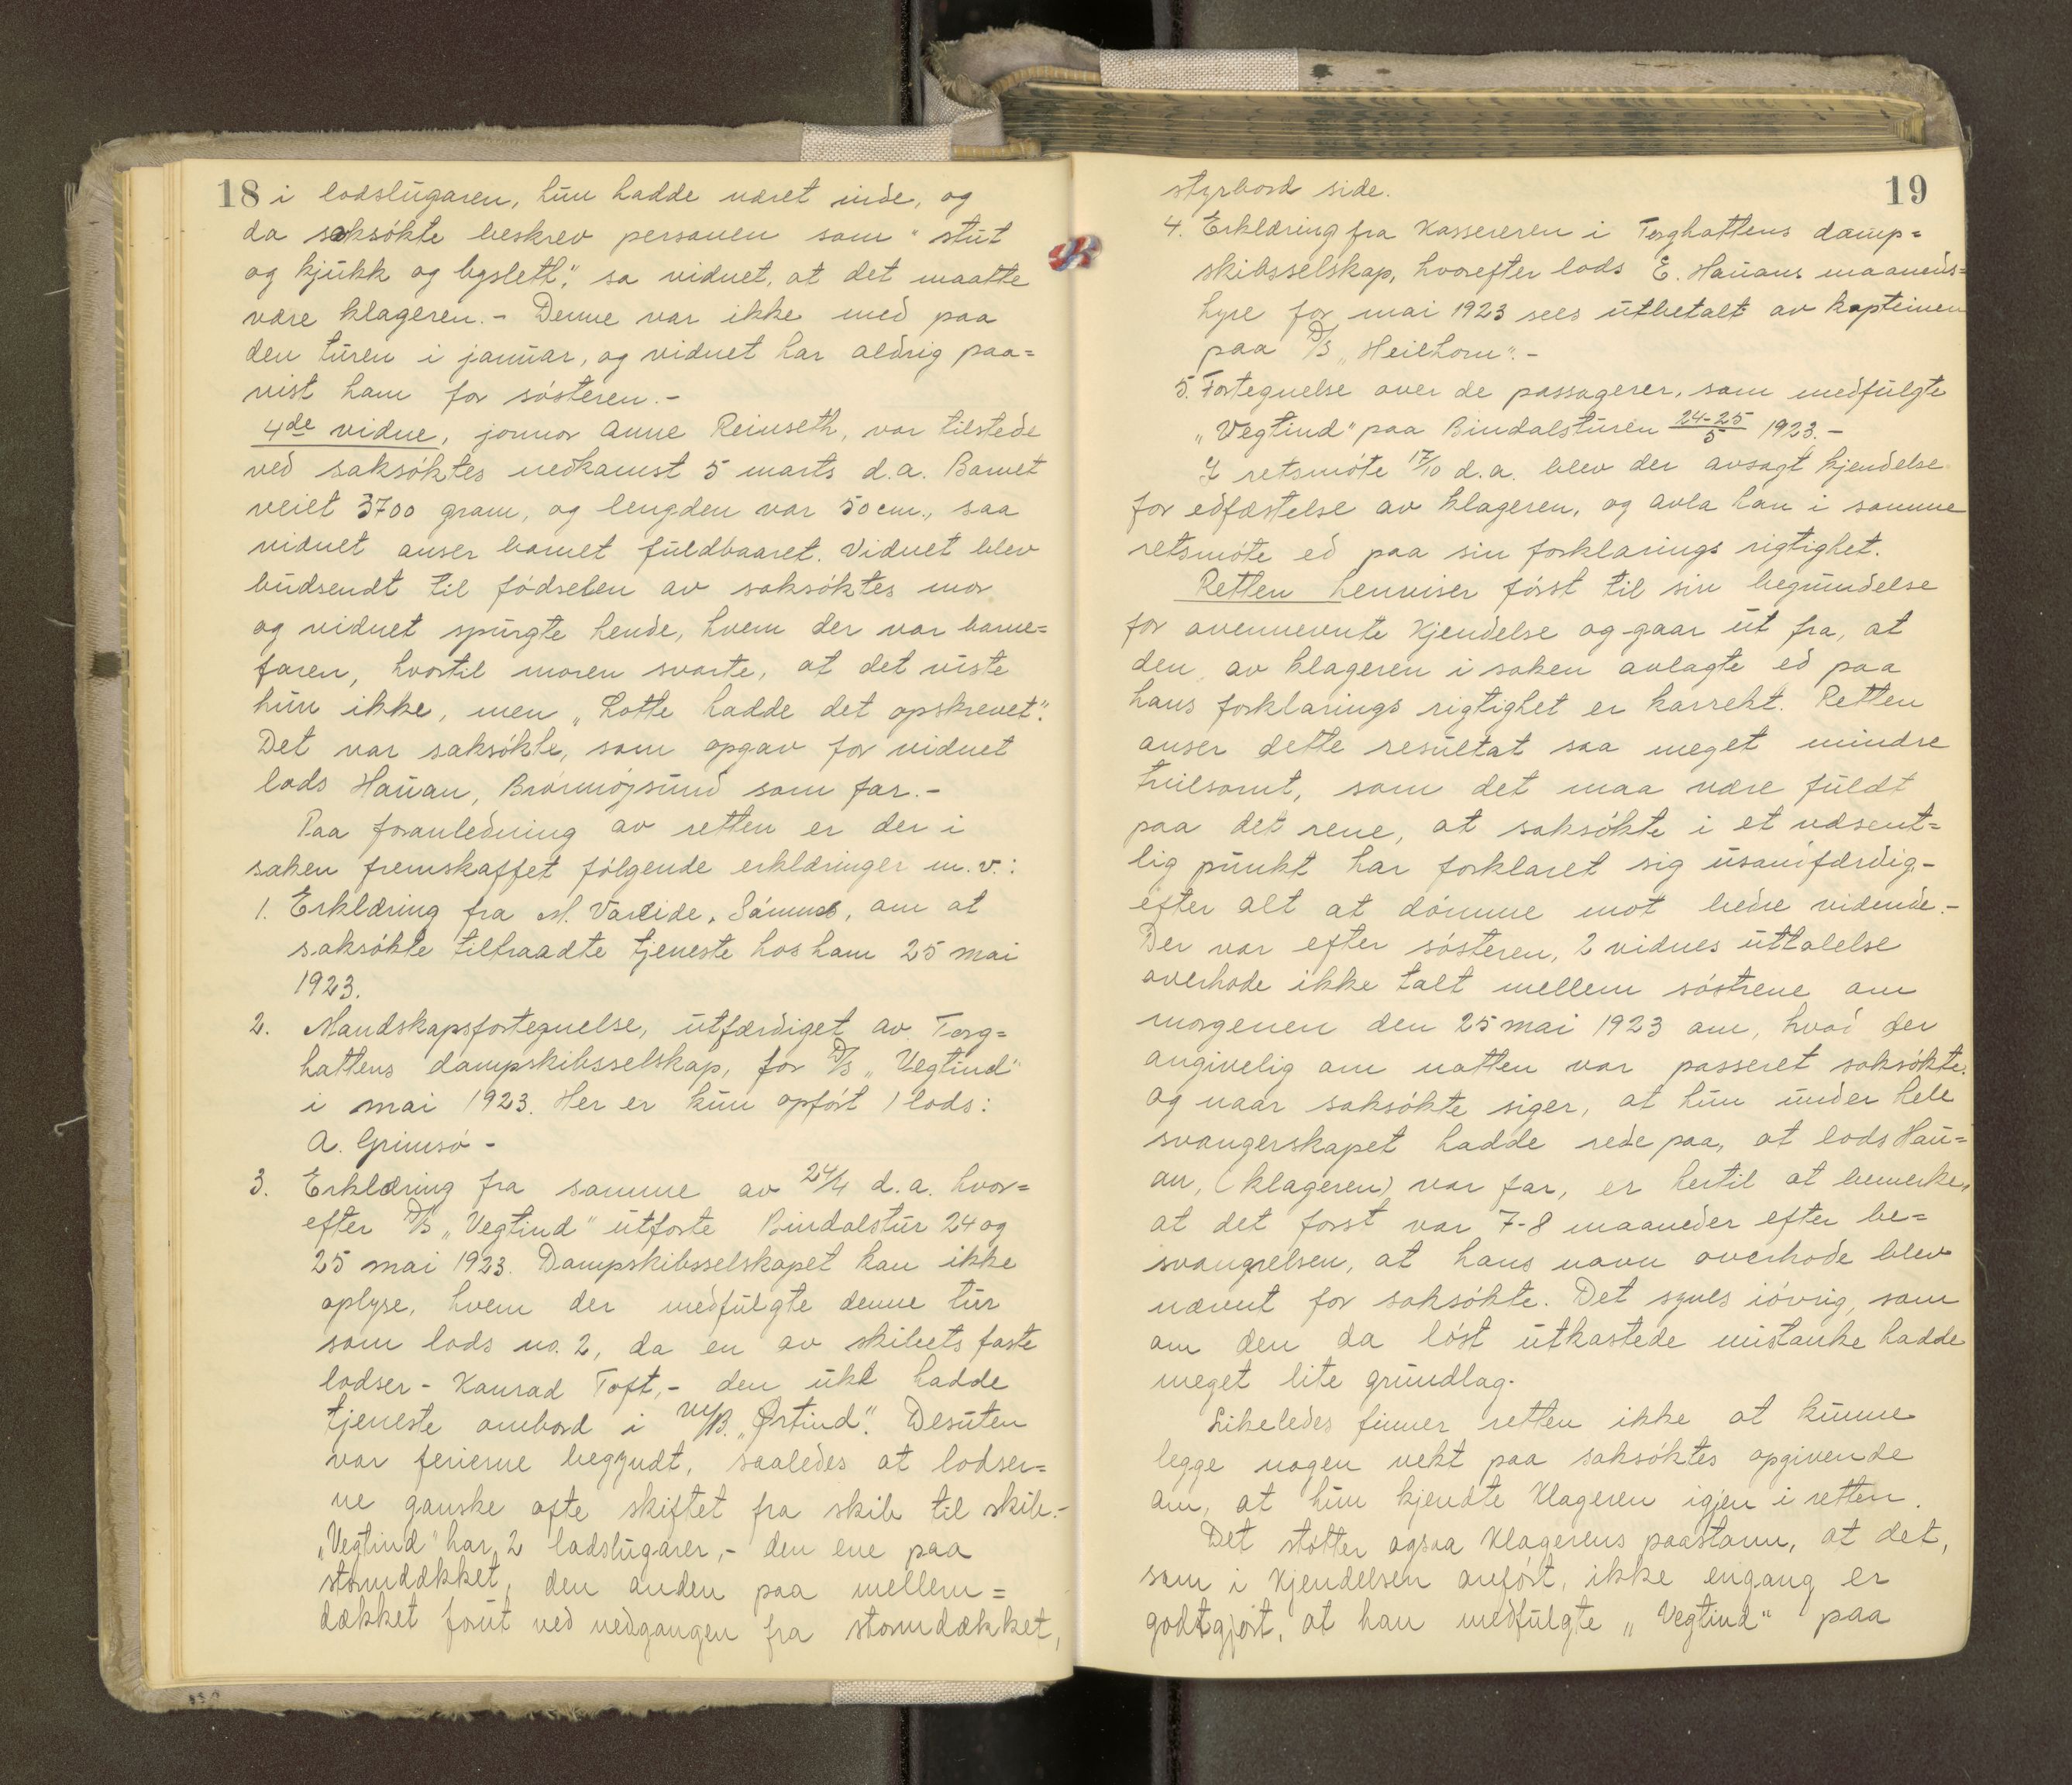 18 i lodslugaren, hun hadde været inde, og
da saksökte beskrev personen som "stut
og kjukk og lyslett", sa vidnet, at det maatte
være klageren. - Denne var ikke med paa
den turen i januar, og vidnet har aldrig paa=
vist ham for sösteren. -
4de vidne, jormor Anne Reinseth, var tilstede
ved saksöktes nedkomst 5 marts d.a. Barnet
veiet 3700 gram, og lengden var 50 cm., saa
vidnet anser barnet fuldbaaret. Vidnet blev
budsendt til födselen av saksöktes mor
og vidnet spurgte hende, hvem der var barne=
faren, hvortil moren svarte, at det viste
hun ikke, men "Lotte hadde det opskrevet".
Det var saksökte, som opgav for vidnet
lods Hauan, Brönnöysund som far. -
Paa foranledning av retten er der i
saken fremskaffet fölgende erklæringer m.v.:
1. Erklæring fra M. Vareide, Sömnes, om at
saksökte tiltraadte tjeneste hos ham 25 mai
1923.
2. Mandskapsfortegnelse, utfærdiget av Torg=
hattens dampskibsselskap, for D/S "Vegtind"
i mai 1923. Her er kun opfört 1 lods:
A. Grimsö -
3. Erklæring fra samme av 24/4 d.a. hvor=
efter D/S "Vegtind" utforte Bindalstur 24 og
25 mai 1923. Dampskibsselskapet kan ikke
oplyse, hvem der medfulgte denne tur
som lods no. 2, da en av skibets faste
lodser - Konrad Toft, - den uke hadde
tjeneste ombord i M/B. "Örtind". Desuten
var ferierne begyndt, saaledes at lodser=
ne ganske ofte skiftet fra skib til skib. -
"Vegtind" har 2 lodslugarer, - den ene paa
stormdækket, den anden paa mellem=
dækket forut ved nedgangen fra stormdækket,
19
styrbord side.
4. Erklæring fra Kassereren i Torghattens damp=
skibsselskap, hvorefter lods E. Hauans maaneds=
hyre for mai 1923 sees utbetalt av kapteinen
paa D/S "Heilhorn". -
5. Fortegnelse over de passagerer, som medfulgte
"Vegtind" paa Bindalsturen 24-25/5 1923. -
I retsmöte 17/10 d.a. blev der avsagt kjendelse
for edfæstelse av klageren, og avla han i samme
retsmöte ed paa sin forklarings rigtighet.
Retten henviser först til sin begrundelse
for ovennevnte Kjendelse og gaar ut fra, at
den av klageren i saken avlagte ed paa
hans forklarings rigtighet er korrekt. Retten
anser dette resultat saa meget mindre
tvilsomt, som det maa være fuldt
paa det rene, at saksökte i et væsent=
lig punkt har forklaret sig usandfærdig -
efter alt at dömme mot bedre vidende. -
Der var efter sösteren, 2 vidnes uttalelse
overhode ikke talt mellem söstrene om
morgenen den 25 mai 1923 om, hvad der
angivelig om natten var passeret saksökte.
Og naar saksökte siger, at hun under hele
svangerskapet hadde rede paa, at lods Hau=
an, (klageren) var far, er hertil at bemerke,
at det forst var 7-8 maaneder efter be=
svangrelsen, at hans navn overhode blev
nævnt for saksökte. Det synes iövrig, som
om den da löst utkastede mistanke hadde
meget lite grundlag.
Likeledes finner retten ikke at kunne
legge nogen vekt paa saksöktes opgivende
om, at hun kjendte Klageren igjen i retten.
Det stotter ogsaa Klagerens paastann, at det,
som i Kjendelsen anfört, ikke engang er
godtgjort, at han medfulgte "Vegtind" paa